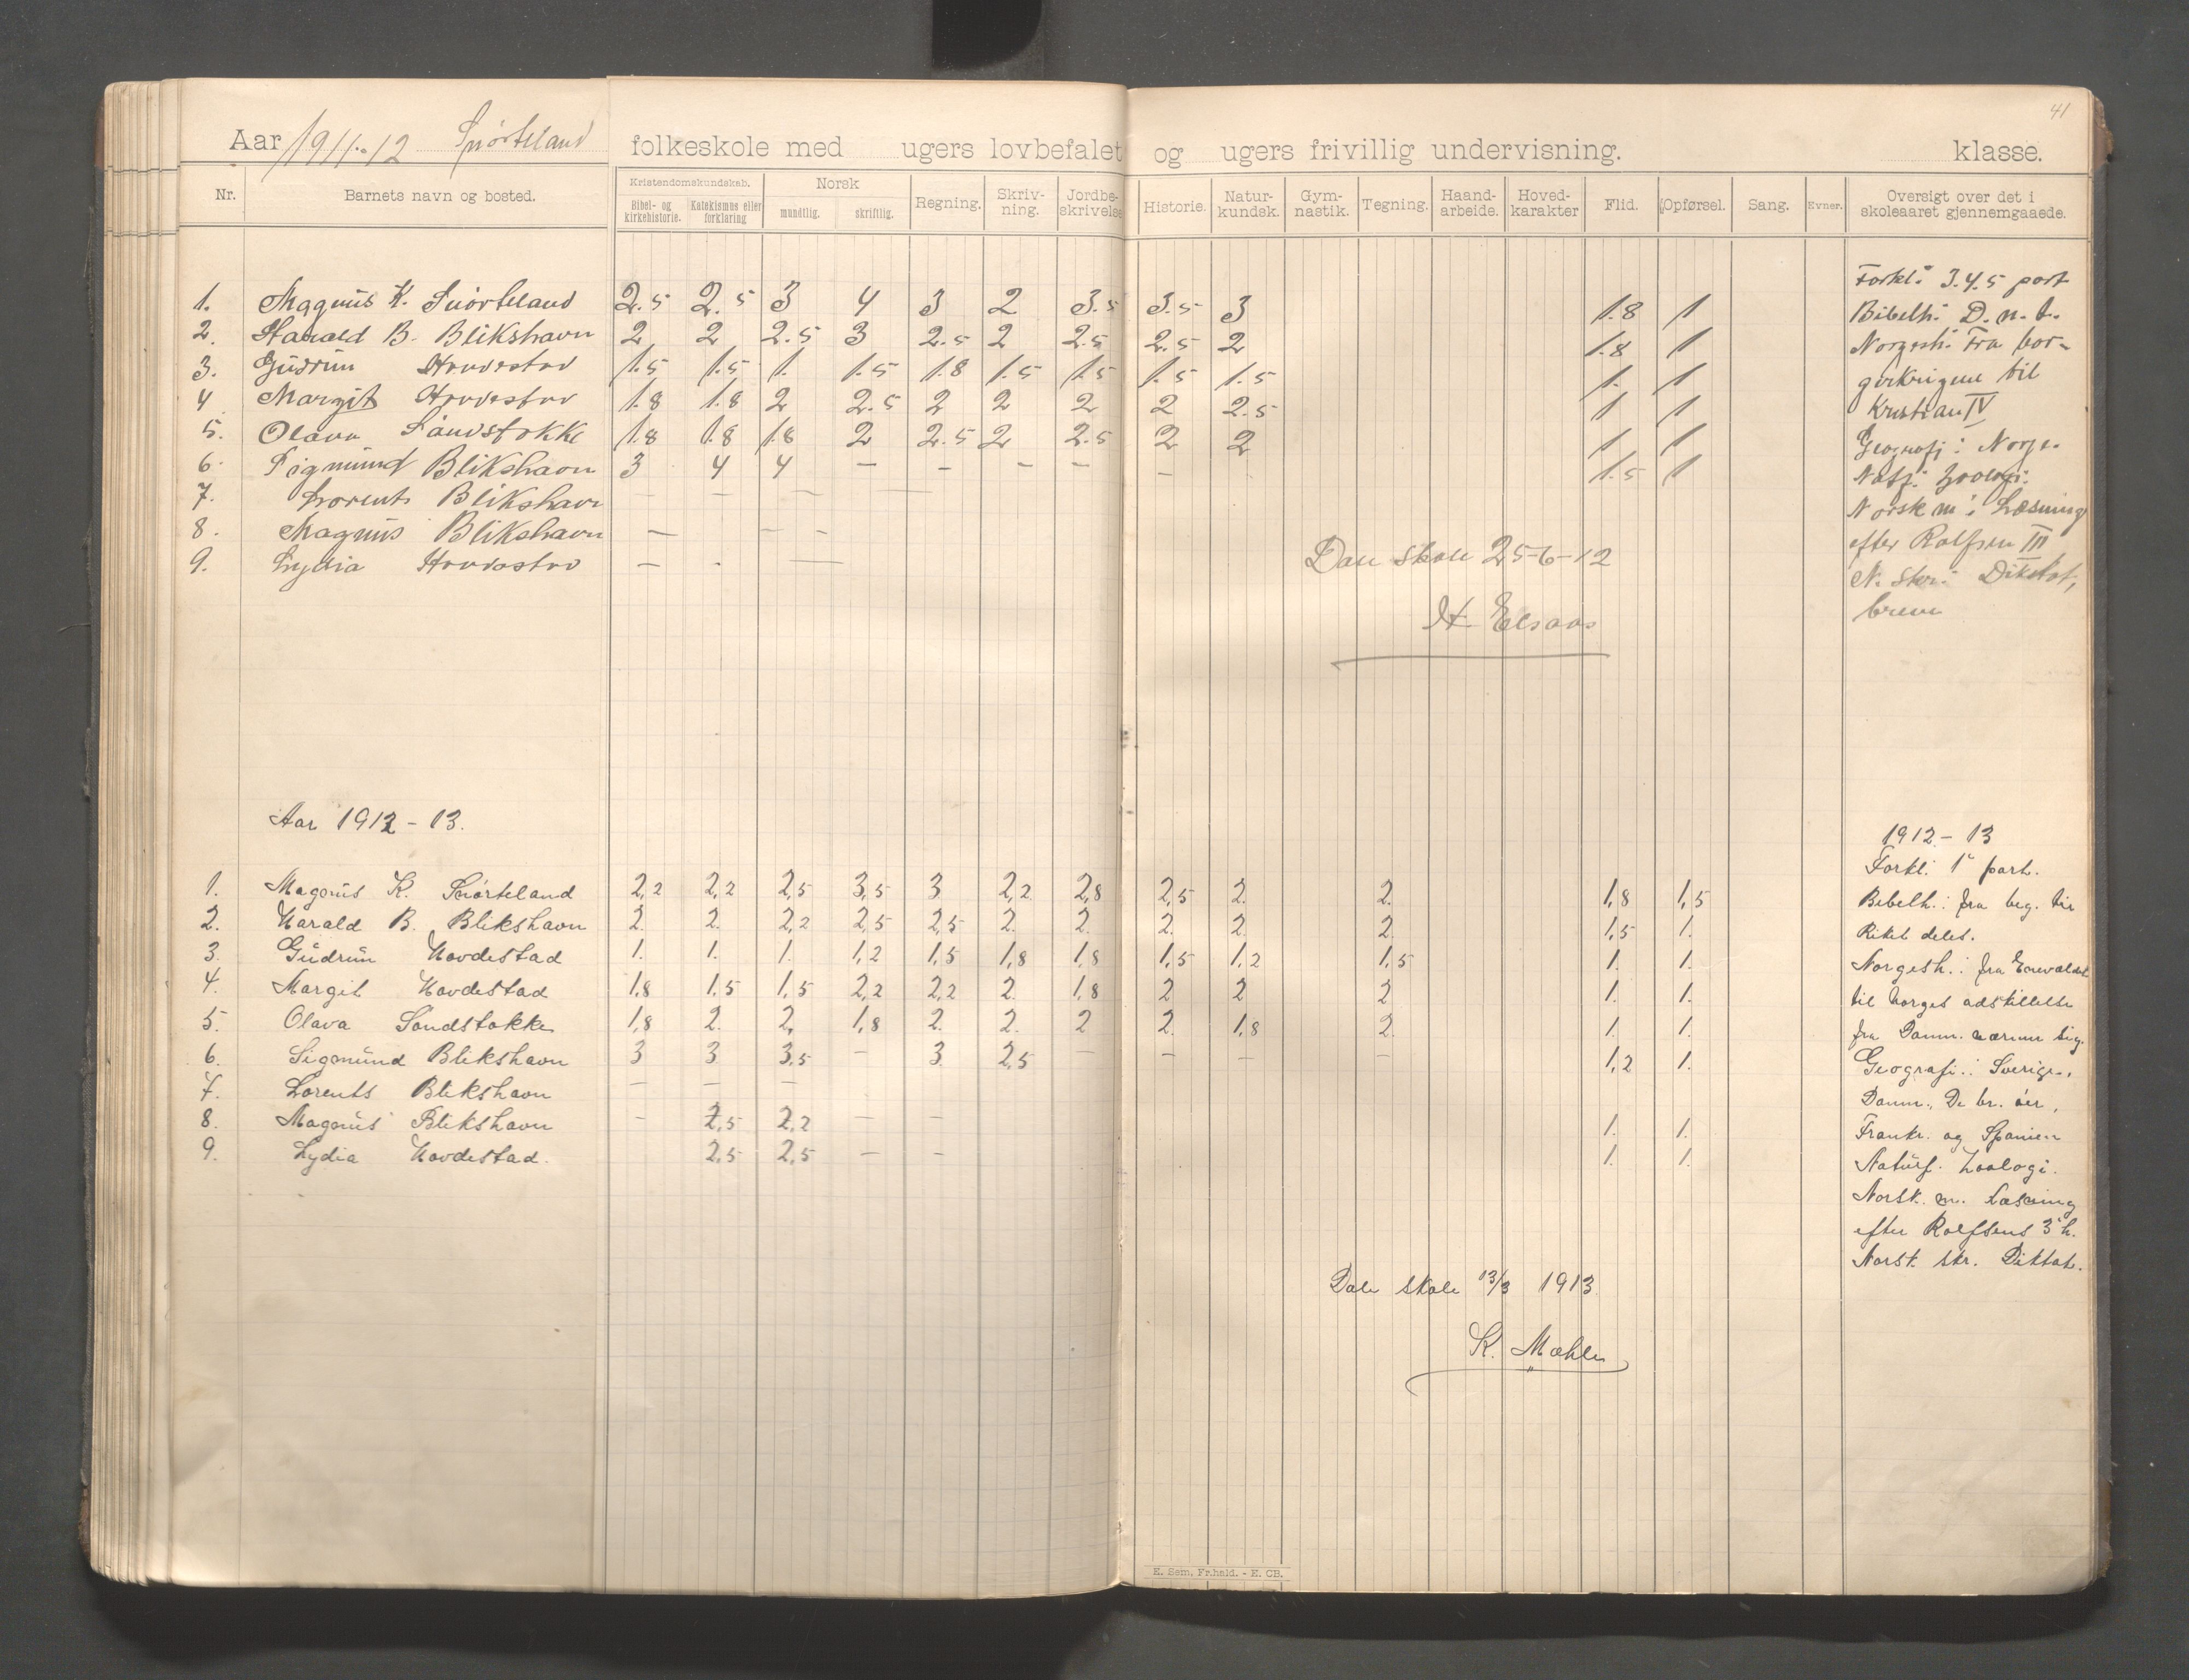 41
Aar 1911-12 Snørteland folkeskole med ugers lovbefalet og ugers frivillig undervisning. klasse.
Nr. Barnets navn og bosted. Kristendomskundskab. Bibel- og kirkehistorie. Katekismus eller forklaring Norsk mundtlig. skriftlig. Regning. Skriv-ning. Jordbe-skrivelse Historie. Natur-kundsk. Gym-nastik. Tegning. Haand-arbeide. Hoved-karakter Flid. Opførsel. Sang. Evner. Oversigt over det i skoleaaret gjennemgaaede.
Forkl: 3.4.5 part
1. Magnus K. Snørteland 2.5 2.5 3 4 3 2 3.5 3.5 3 1.8 1 Bibelh: D. n. t.
2. Harald B. Blikshavn 2 2 2.5 3 2.5 2 2.5 2.5 2 1.8 1 Norgesh: Fra bor-
3. Gudrun Hovdestad 1.5 1.5 1. 1.5 1.8 1.5 1.5 1.5 1.5 1. 1 gerkrigene til
4 Margit Hovdestad 1.8 1.8 2 2.5 2 2 2 2 2.5 1 1 Kristian IV
5. Olava Sandstokke 1.8 1.8 1.8 2 2.5 2 2.5 2 2 1 1 Geografi: Norge.
6. Sigmund Blikshavn 3 4 4 - - - - - 1.5 1 Natf. Zoologi.
7. Lorents Blikshavn - - - - Norsk m: Læsning
8. Magnus Blikshavn - - - efter Rolfsen III
9. Lydia Hovdestad - - - Dale skole 25-6-12 N. skr: Diktat,
breve
H. Elsaas
Aar 1912-13.
1912-13
Forkl. 1' part.
1. Magnus K. Snørteland 2,2 2,2 2,5 3,5 3 2,2 2,8 2,5 2. 2. 1,8 1,5 Bibelh.: fra beg. til
2. Harald B. Blikshavn 2. 2. 2,2 2,5 2,5 2. 2. 2. 2. 2. 1,5 1. Riket delet.
3. Gudrun Hovdestad 1. 1. 1. 1,2 1,5 1,8 1,8 1,5 1,2 1,5 1. 1. Norgesh.: fra Enevældet
4. Margit Hovdestad 1,8 1,5 1,5 2,2 2,2 2. 1,8 2 2 2 1. 1. til Norges adskillelse
5. Olava Sandstokke 1,8 2. 2, 1,8 2. 2. 2 2. 1,8 2. 1. 1. fra Danm. nærmer sig.
6. Sigmund Blikshavn 3 3 3,5 - 3. 2,5 - - - - 1,2 1. Geografi.: Sverige,
7. Lorents Blikshavn - - - Danm., De br. øer,
8. Magnus Blikshavn - 2,5 2,2 - - 1. 1. Frankr. og Spanien
9. Lydia Hovdestad. 2,5 2,5 - - 1. 1. Naturf. Zoologi.
Norsk. m. Læsning
efter Rolfsens 3' h.
Norsk. skr. Diktat.
Dale skole 13/3 1913
K. Mæhle
E. Sem, Fr.hald. - E. CB.